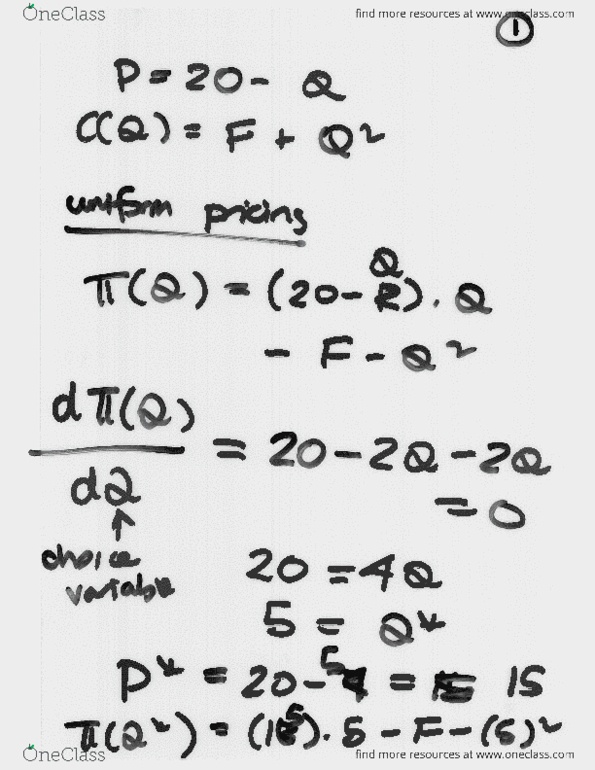 OneClass
find more resources at www.oneclass.com
1
P = 20 - Q
C(Q) = F + Q²
uniform pricing
π(Q) = (20 - Q) . Q
- F - Q²
dπ(Q)
dQ
= 20 - 2Q - 2Q
= 0
↑
choice
variable
20 = 4Q
5 = Q*
P* = 20 - 5 = 15
π(Q*) = (15) . 5 - F - (5)²
OneClass
find more resources at www.oneclass.com